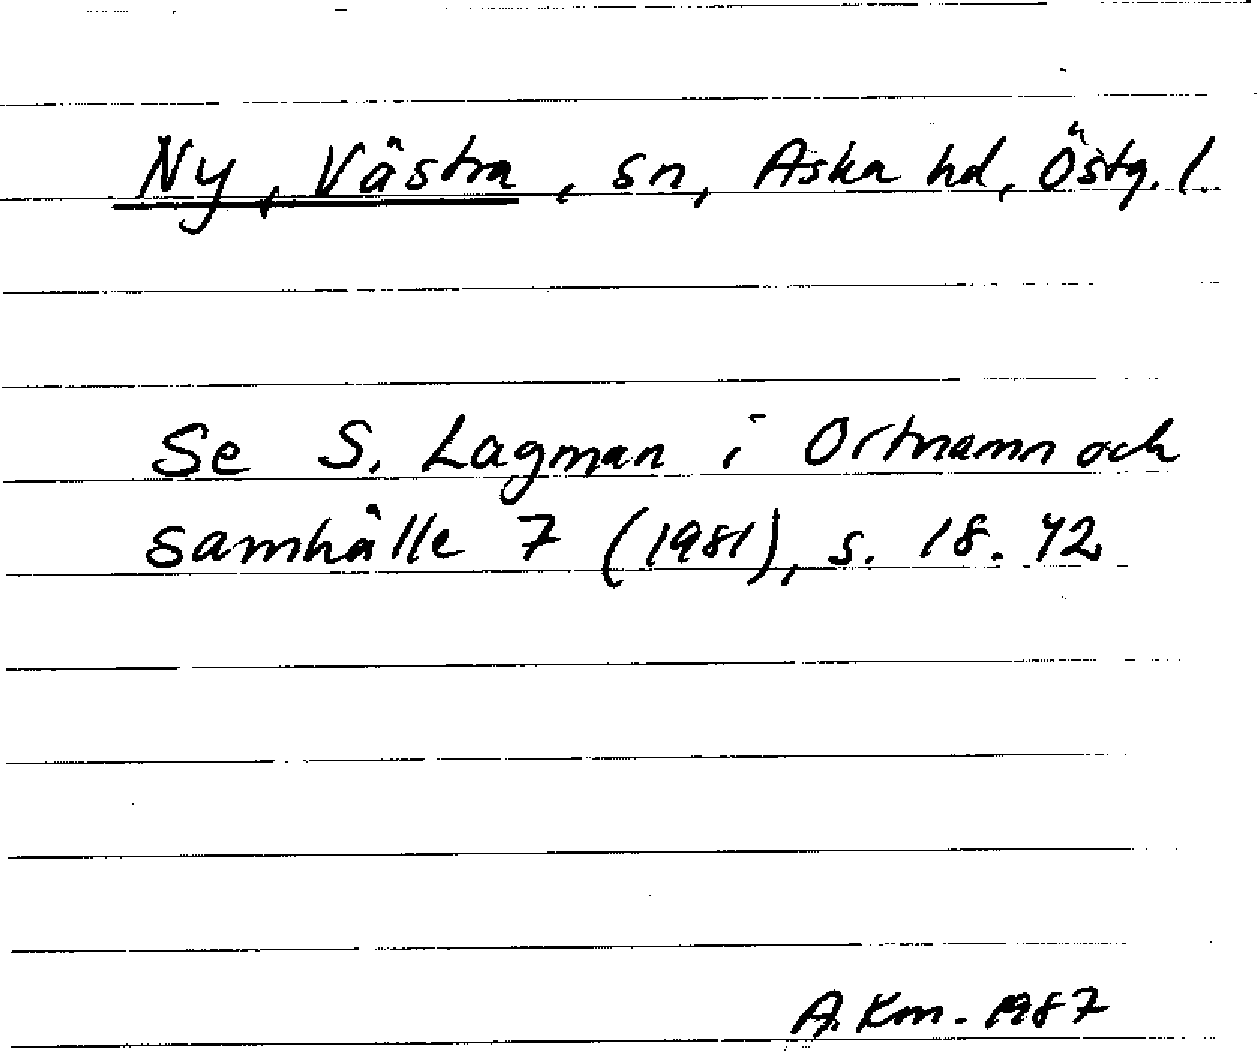 Ny, Västra, sn, Aska hd, Östg. l.
Se S. Lagman i Ortnamn och
samhälle 7 (1981), s. 18. 42
A. Km. 1987